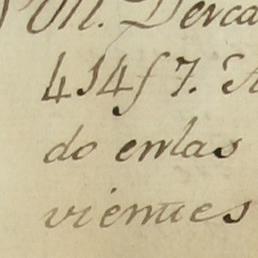 M. Derca
414f7.
do enlas
vienttes